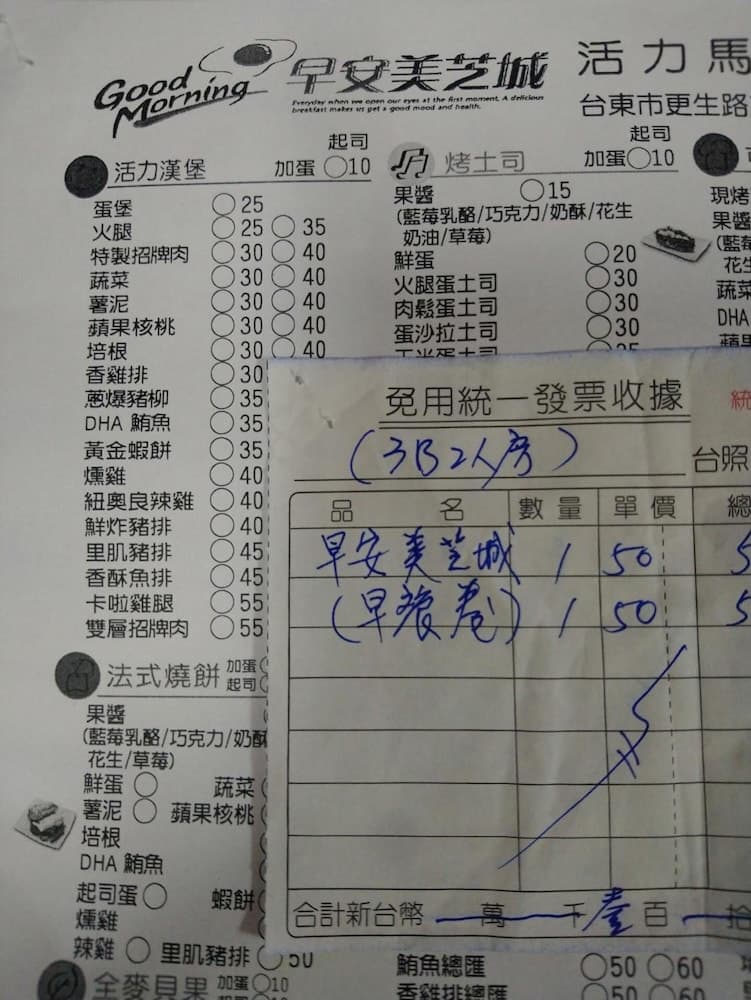 Good Morning 早安美芝城 活力馬
Everyday when we open our eyes at the first moment. A delicious
breakfast makes us get a good mood and health.
台東市更生路
活力漢堡 加蛋 起司 ○10
蛋堡 ○25
火腿 ○25 ○35
特製招牌肉 ○30 ○40
蔬菜 ○30 ○40
薯泥 ○30 ○40
蘋果核桃 ○30 ○40
培根 ○30 ○40
香雞排 ○30
蔥爆豬柳 ○35
DHA 鮪魚 ○35
黃金蝦餅 ○35
燻雞 ○40
紐奧良辣雞 ○40
鮮炸豬排 ○40
里肌豬排 ○45
香酥魚排 ○45
卡啦雞腿 ○55
雙層招牌肉 ○55
法式燒餅 加蛋 起司
果醬
(藍莓乳酪/巧克力/奶酥
花生/草莓)
鮮蛋 ○ 蔬菜
薯泥 ○ 蘋果核桃
培根
DHA 鮪魚
起司蛋 ○ 蝦餅
燻雞
辣雞 ○ 里肌豬排 ○50
全麥貝果 加蛋 ○10
烤土司 加蛋 起司 ○10
果醬 ○15
(藍莓乳酪/巧克力/奶酥/花生
奶油/草莓)
鮮蛋 ○20
火腿蛋土司 ○30
肉鬆蛋土司 ○30
蛋沙拉土司 ○30
現烤
果醬
(藍莓
花生
蔬菜
DHA
蘋果
免用統一發票收據
統
(3B2人房)
台照
品名 數量 單價 總
早安美芝城 1 50 5
(早餐卷) 1 50 5
合計新台幣 萬 千 壹 百 拾
鮪魚總匯 ○50 ○60
香雞排總匯 ○50 ○60